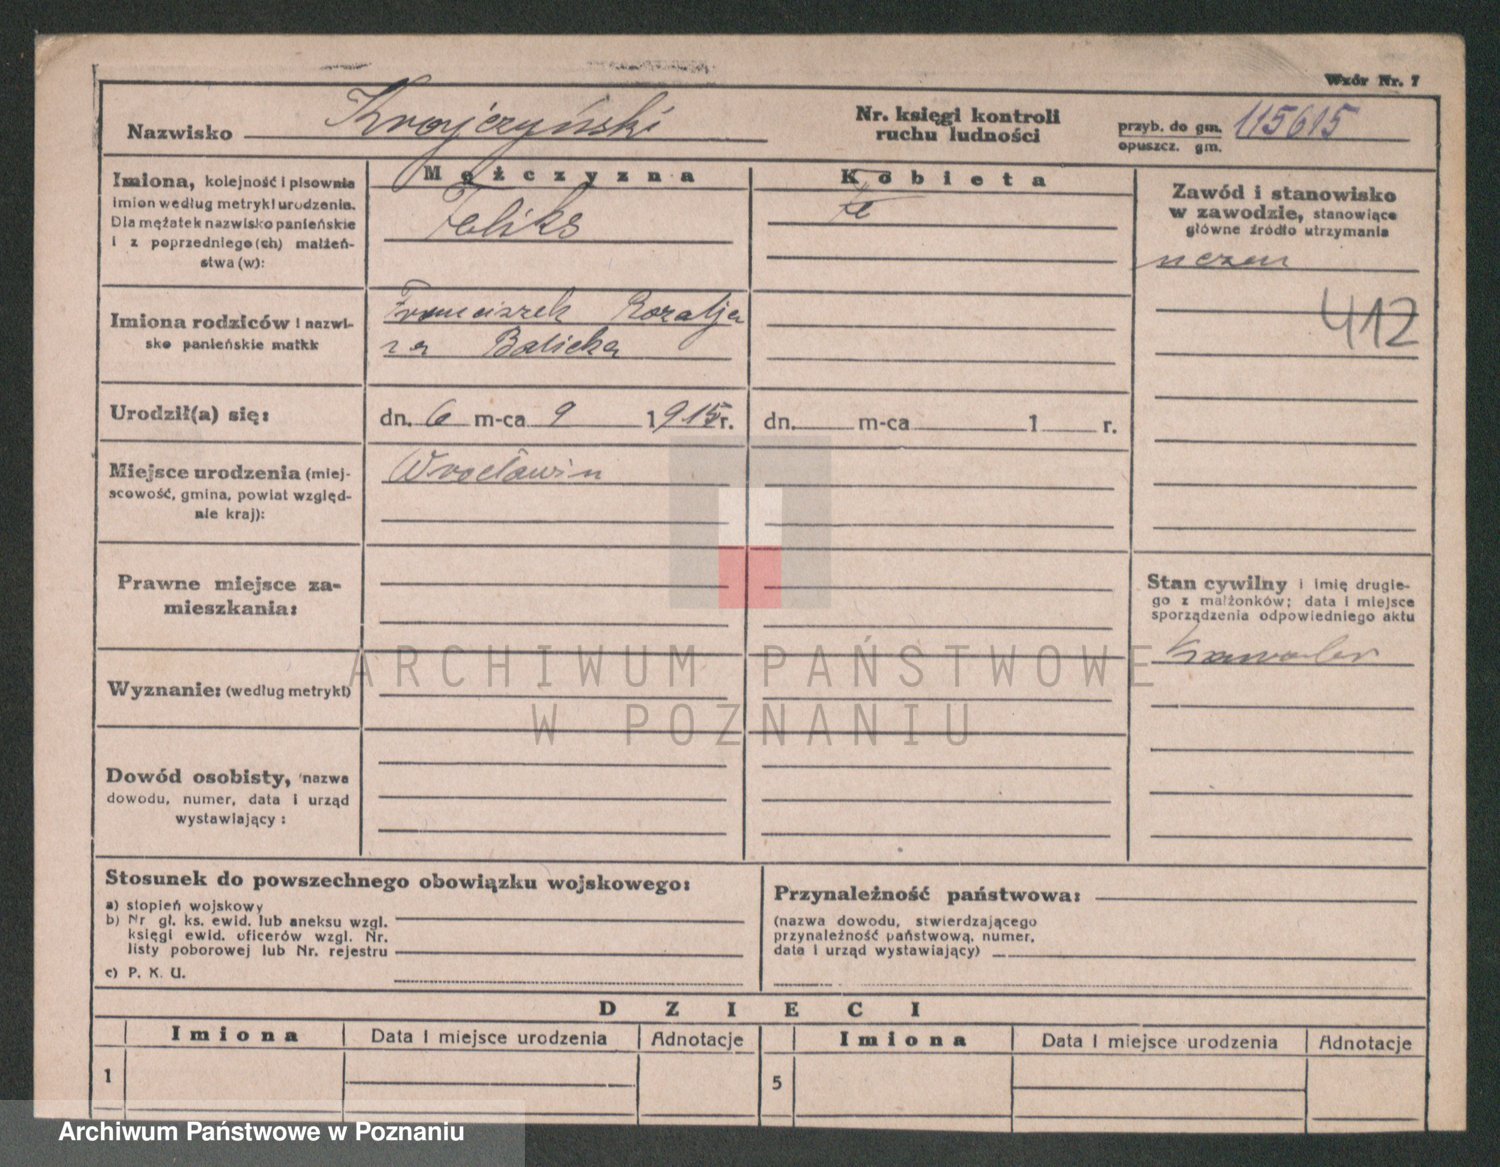 Wzór Nr. 7
Nazwisko Krojczyński
Nr. księgi kontroli
ruchu ludności
przyb. do gm. 115615
opuszcz. gm.
Imiona, kolejność i pisownia
imion według metryki urodzenia.
Dla mężatek nazwisko panieńskie
i z poprzedniego (ch) małżeń-
stwa (w):
Mężczyzna
Feliks
Kobieta
Fe
Zawód i stanowisko
w zawodzie, stanowiące
główne źródło utrzymania
uczeń
412
Imiona rodziców i nazwi-
sko panieńskie matki
Franciszek Rozalja
z d Balicka
Urodził(a) się:
dn. 6 m-ca 9 1915 r.
dn. m-ca 1 r.
Miejsce urodzenia (miej-
scowość, gmina, powiat względ-
nie kraj):
Wrocławin
Prawne miejsce za-
mieszkania:
Stan cywilny i imię drugie-
go z małżonków; data i miejsce
sporządzenia odpowiedniego aktu
kawaler
Wyznanie: (według metryki)
Dowód osobisty, nazwa
dowodu, numer, data i urząd
wystawiający:
Stosunek do powszechnego obowiązku wojskowego:
a) stopień wojskowy
b) Nr gł. ks. ewid. lub aneksu wzgl.
księgi ewid. oficerów wzgl. Nr.
listy poborowej lub Nr. rejestru
c) P. K. U.
Przynależność państwowa:
(nazwa dowodu, stwierdzającego
przynależność państwową, numer,
data i urząd wystawiający)
DZIECI
Imiona Data i miejsce urodzenia Adnotacje Imiona Data i miejsce urodzenia Adnotacje
1 5
ARCHIWUM PAŃSTWOWE
W POZNANIU
Archiwum Państwowe w Poznaniu